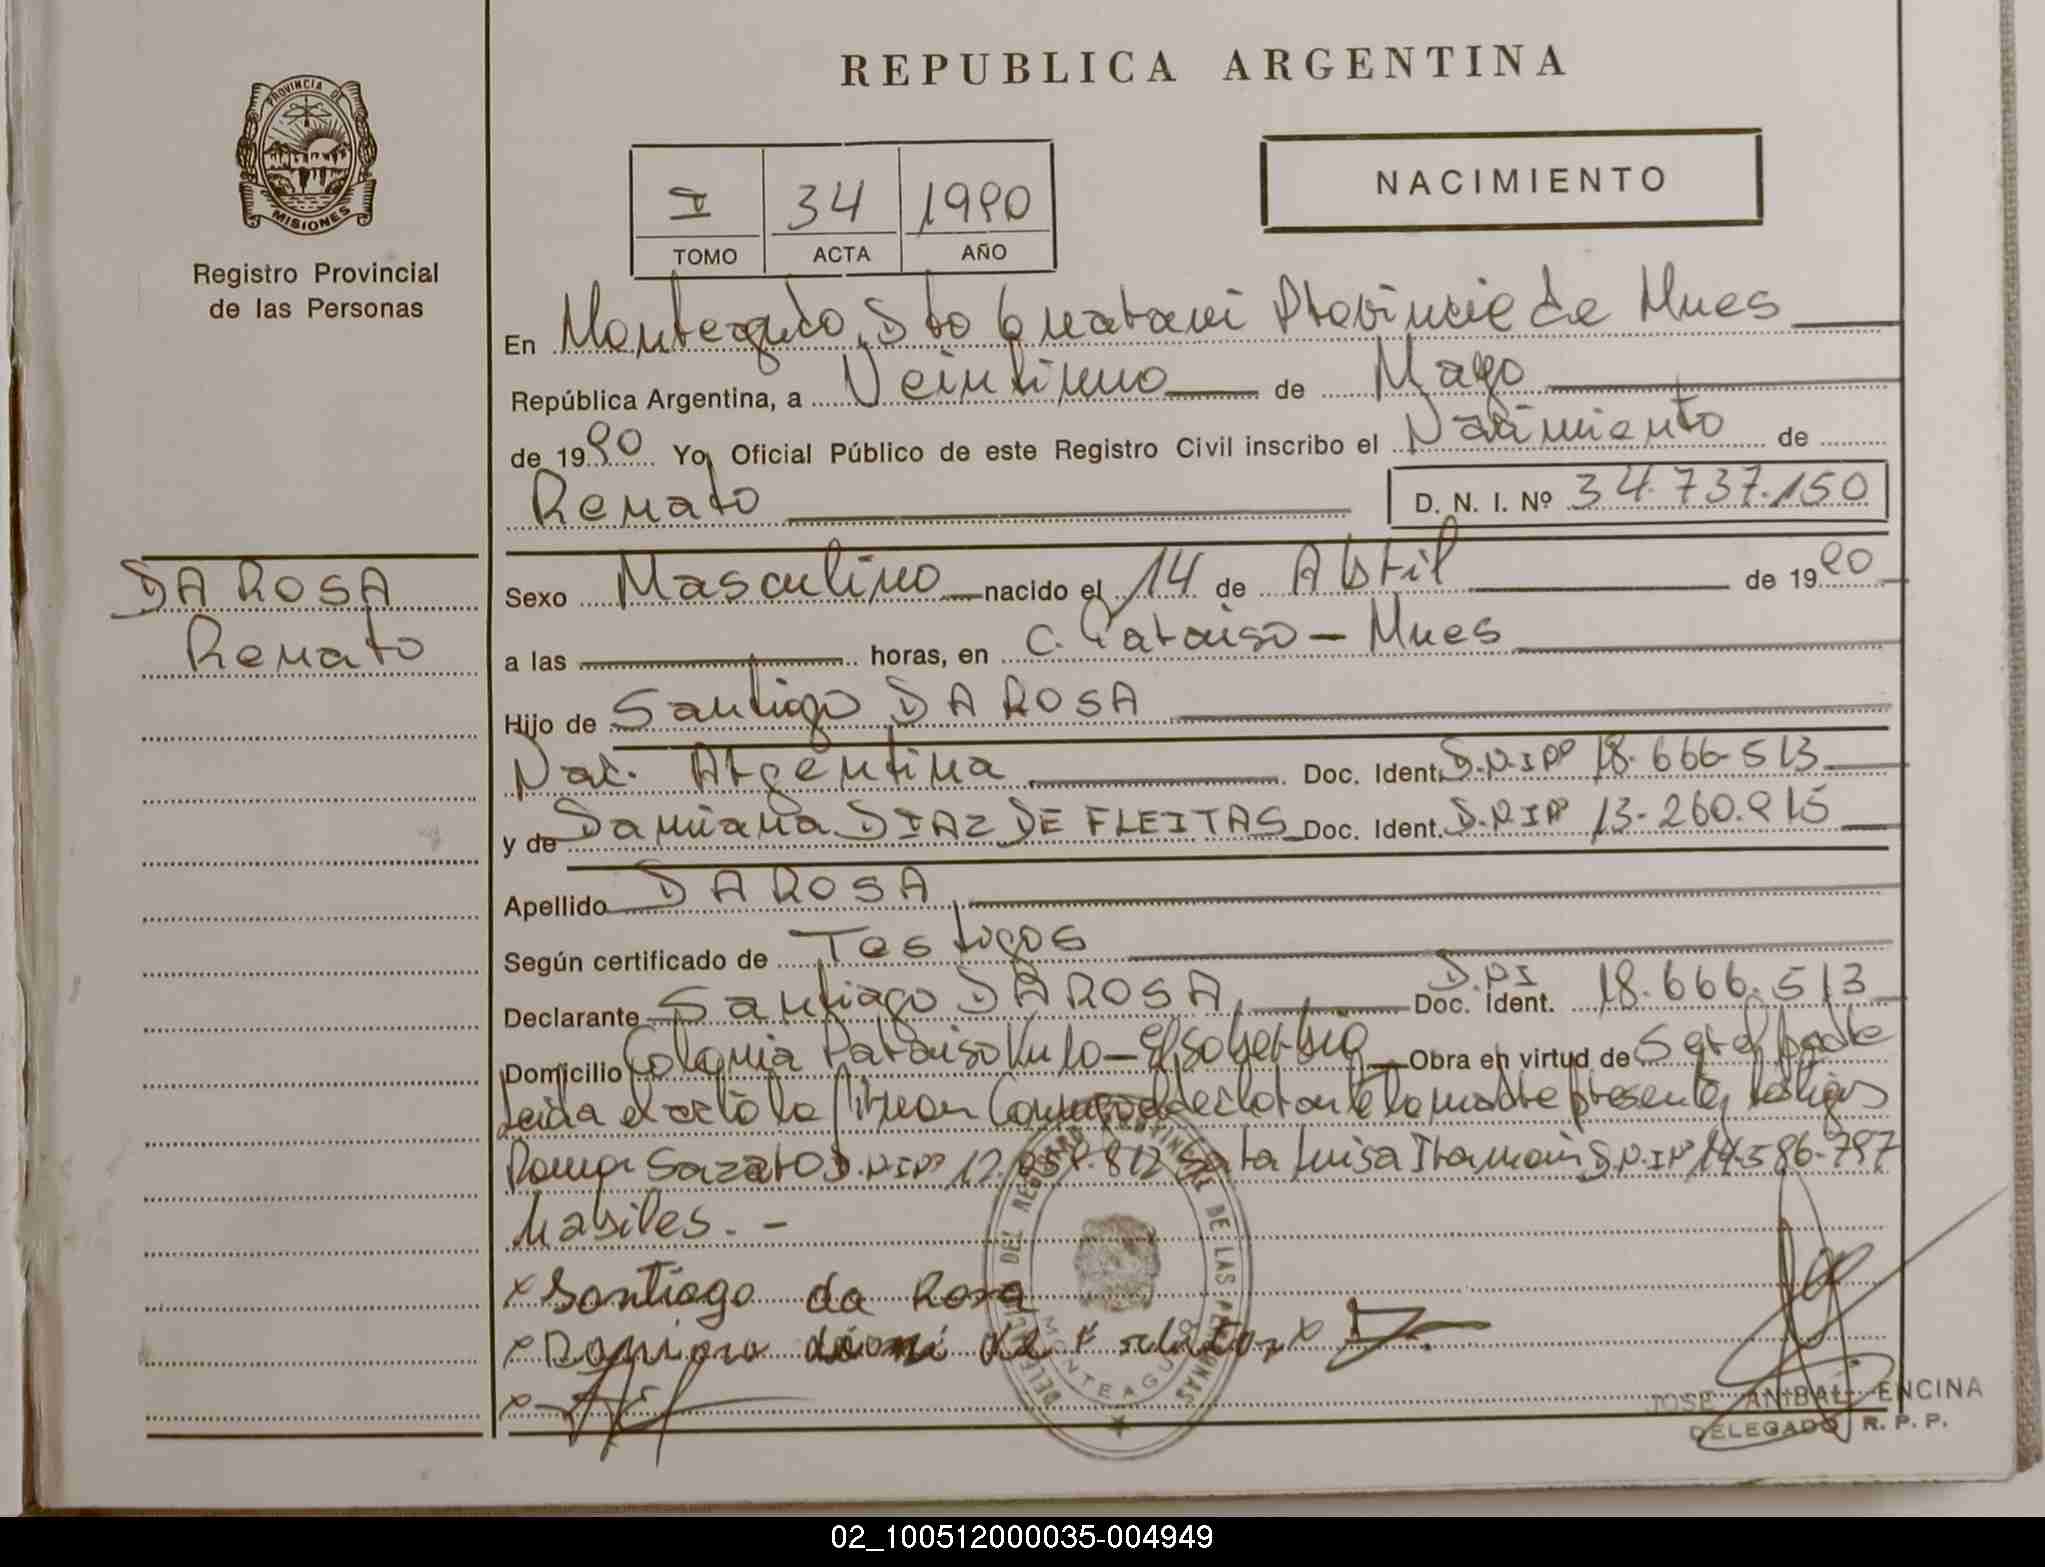 REPUBLICA ARGENTINA
PROVINCIA DE
MISIONES
Registro Provincial
de las Personas
I 34 1990
TOMO ACTA AÑO
NACIMIENTO
En Monteagudo, Dto Guarani Provincia de Mnes
República Argentina, a Veintiuno de Mayo
de 1990 Yo, Oficial Público de este Registro Civil inscribo el Nacimiento de
Renato D. N. I. Nº 34.737.150
DA ROSA
Renato
Sexo Masculino nacido el 14 de Abril de 1990
a las horas, en C. Paraiso - Mnes
Hijo de Santiago DA ROSA
Nac. Argentina Doc. Ident. D.N.I Nº 18.666.513
y de Damiana DIAZ DE FLEITAS Doc. Ident. D.N.I Nº 13.260.915
Apellido DA ROSA
Según certificado de Testigos
Declarante Santiago DA ROSA Doc. Ident. D.N.I 18.666.513
Domicilio Colonia Paraiso - El soberbio Obra en virtud de Ser el padre
Leida el acta la firman Conmigo el declarante la madre presente, testigos
Sazaro D.N.I Nº 12. .812 Luisa D.N.I Nº 14.586.797
habiles. -
x Santiago da Rosa
x
x
DELEGACION DEL REGISTRO PROVINCIAL DE LAS PERSONAS
MONTEAGUDO
JOSE ANIBAL ENCINA
DELEGADO R. P. P.
02_100512000035-004949